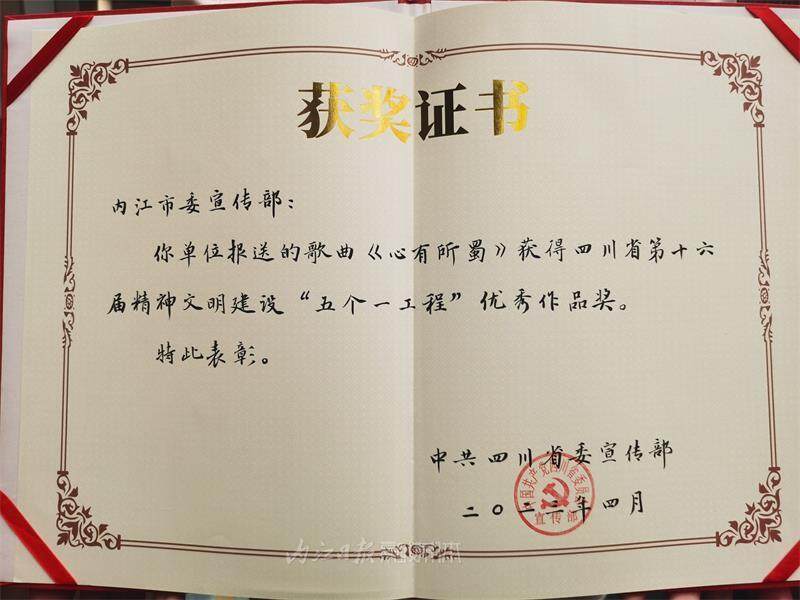 获奖证书
内江市委宣传部：
你单位报送的歌曲《心有所蜀》获得四川省第十六
届精神文明建设“五个一工程”优秀作品奖。
特此表彰。
中共四川省委宣传部
中国共产党四川省委员会
宣传部
二〇二三年四月
内江日报